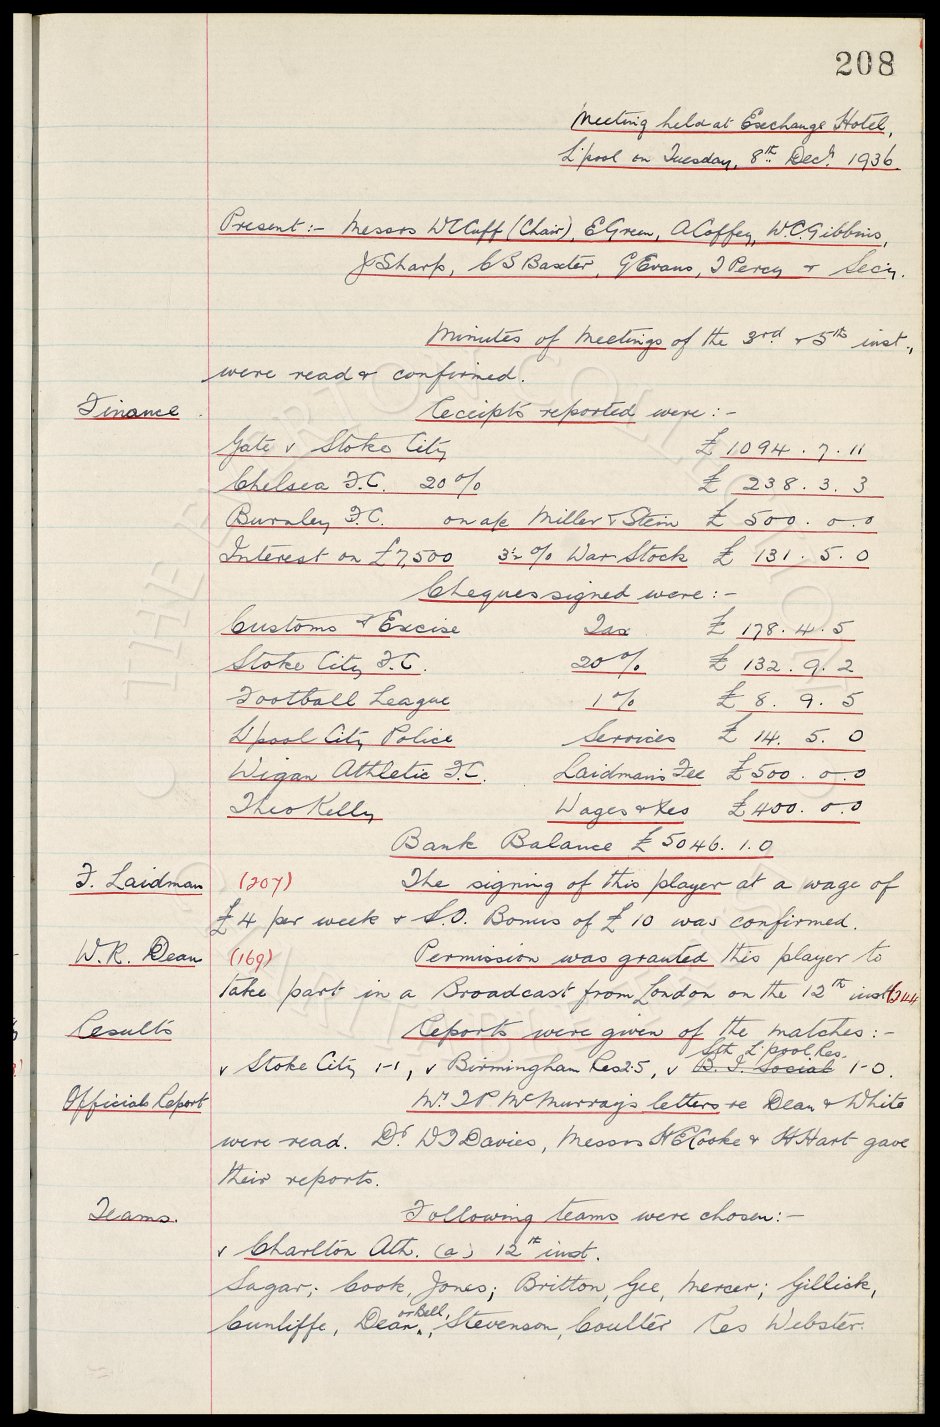 208
Meeting held at Exchange Hotel,
L'pool on Tuesday, 8th Decr. 1936.
Present:- Messrs W C Cuff (Chair), E Green, A Coffey, W.C. Gibbins,
J Sharp, C S Baxter, G Evans, T Percy & Secy.
Minutes of Meetings of the 3rd & 5th inst.,
were read & confirmed.
Finance. Receipts reported were:-
Gate v Stoke City £1094.7.11
Chelsea F.C. 20% £238.3.3
Burnley F.C. on a/c Miller & Stein £500.0.0
Interest on £7,500 3½% War Stock £131.5.0
Cheques signed were:-
Customs & Excise Tax £178.4.5
Stoke City F.C. 20% £132.9.2
Football League 1% £8.9.5
L'pool City Police Services £14.5.0
Wigan Athletic F.C. Laidman's Fee £500.0.0
Theo Kelly Wages & Xes £400.0.0
Bank Balance £5046.1.0
F. Laidman (207) The signing of this player at a wage of
£4 per week & S.O. Bonus of £10 was confirmed.
W.R. Dean (169) Permission was granted this player to
take part in a Broadcast from London on the 12th inst.
Results Reports were given of the matches:-
v Stoke City 1-1, v Birmingham Res 2-5, v B. I. Social Sth L'pool Res. 1-0.
Officials Report Mr. T P McMurray's letters re Dean & White
were read. Dr D T Davies, Messrs H E Cooke & H Hart gave
their reports.
Teams. Following teams were chosen:-
v Charlton Ath. (a) 12th inst.
Sagar; Cook, Jones; Britton, Gee, Mercer; Gillick,
Cunliffe, Dean or Bell, Stevenson, Coulter Res Webster.
© THE EVERTON COLLECTION
CHARITABLE TRUST